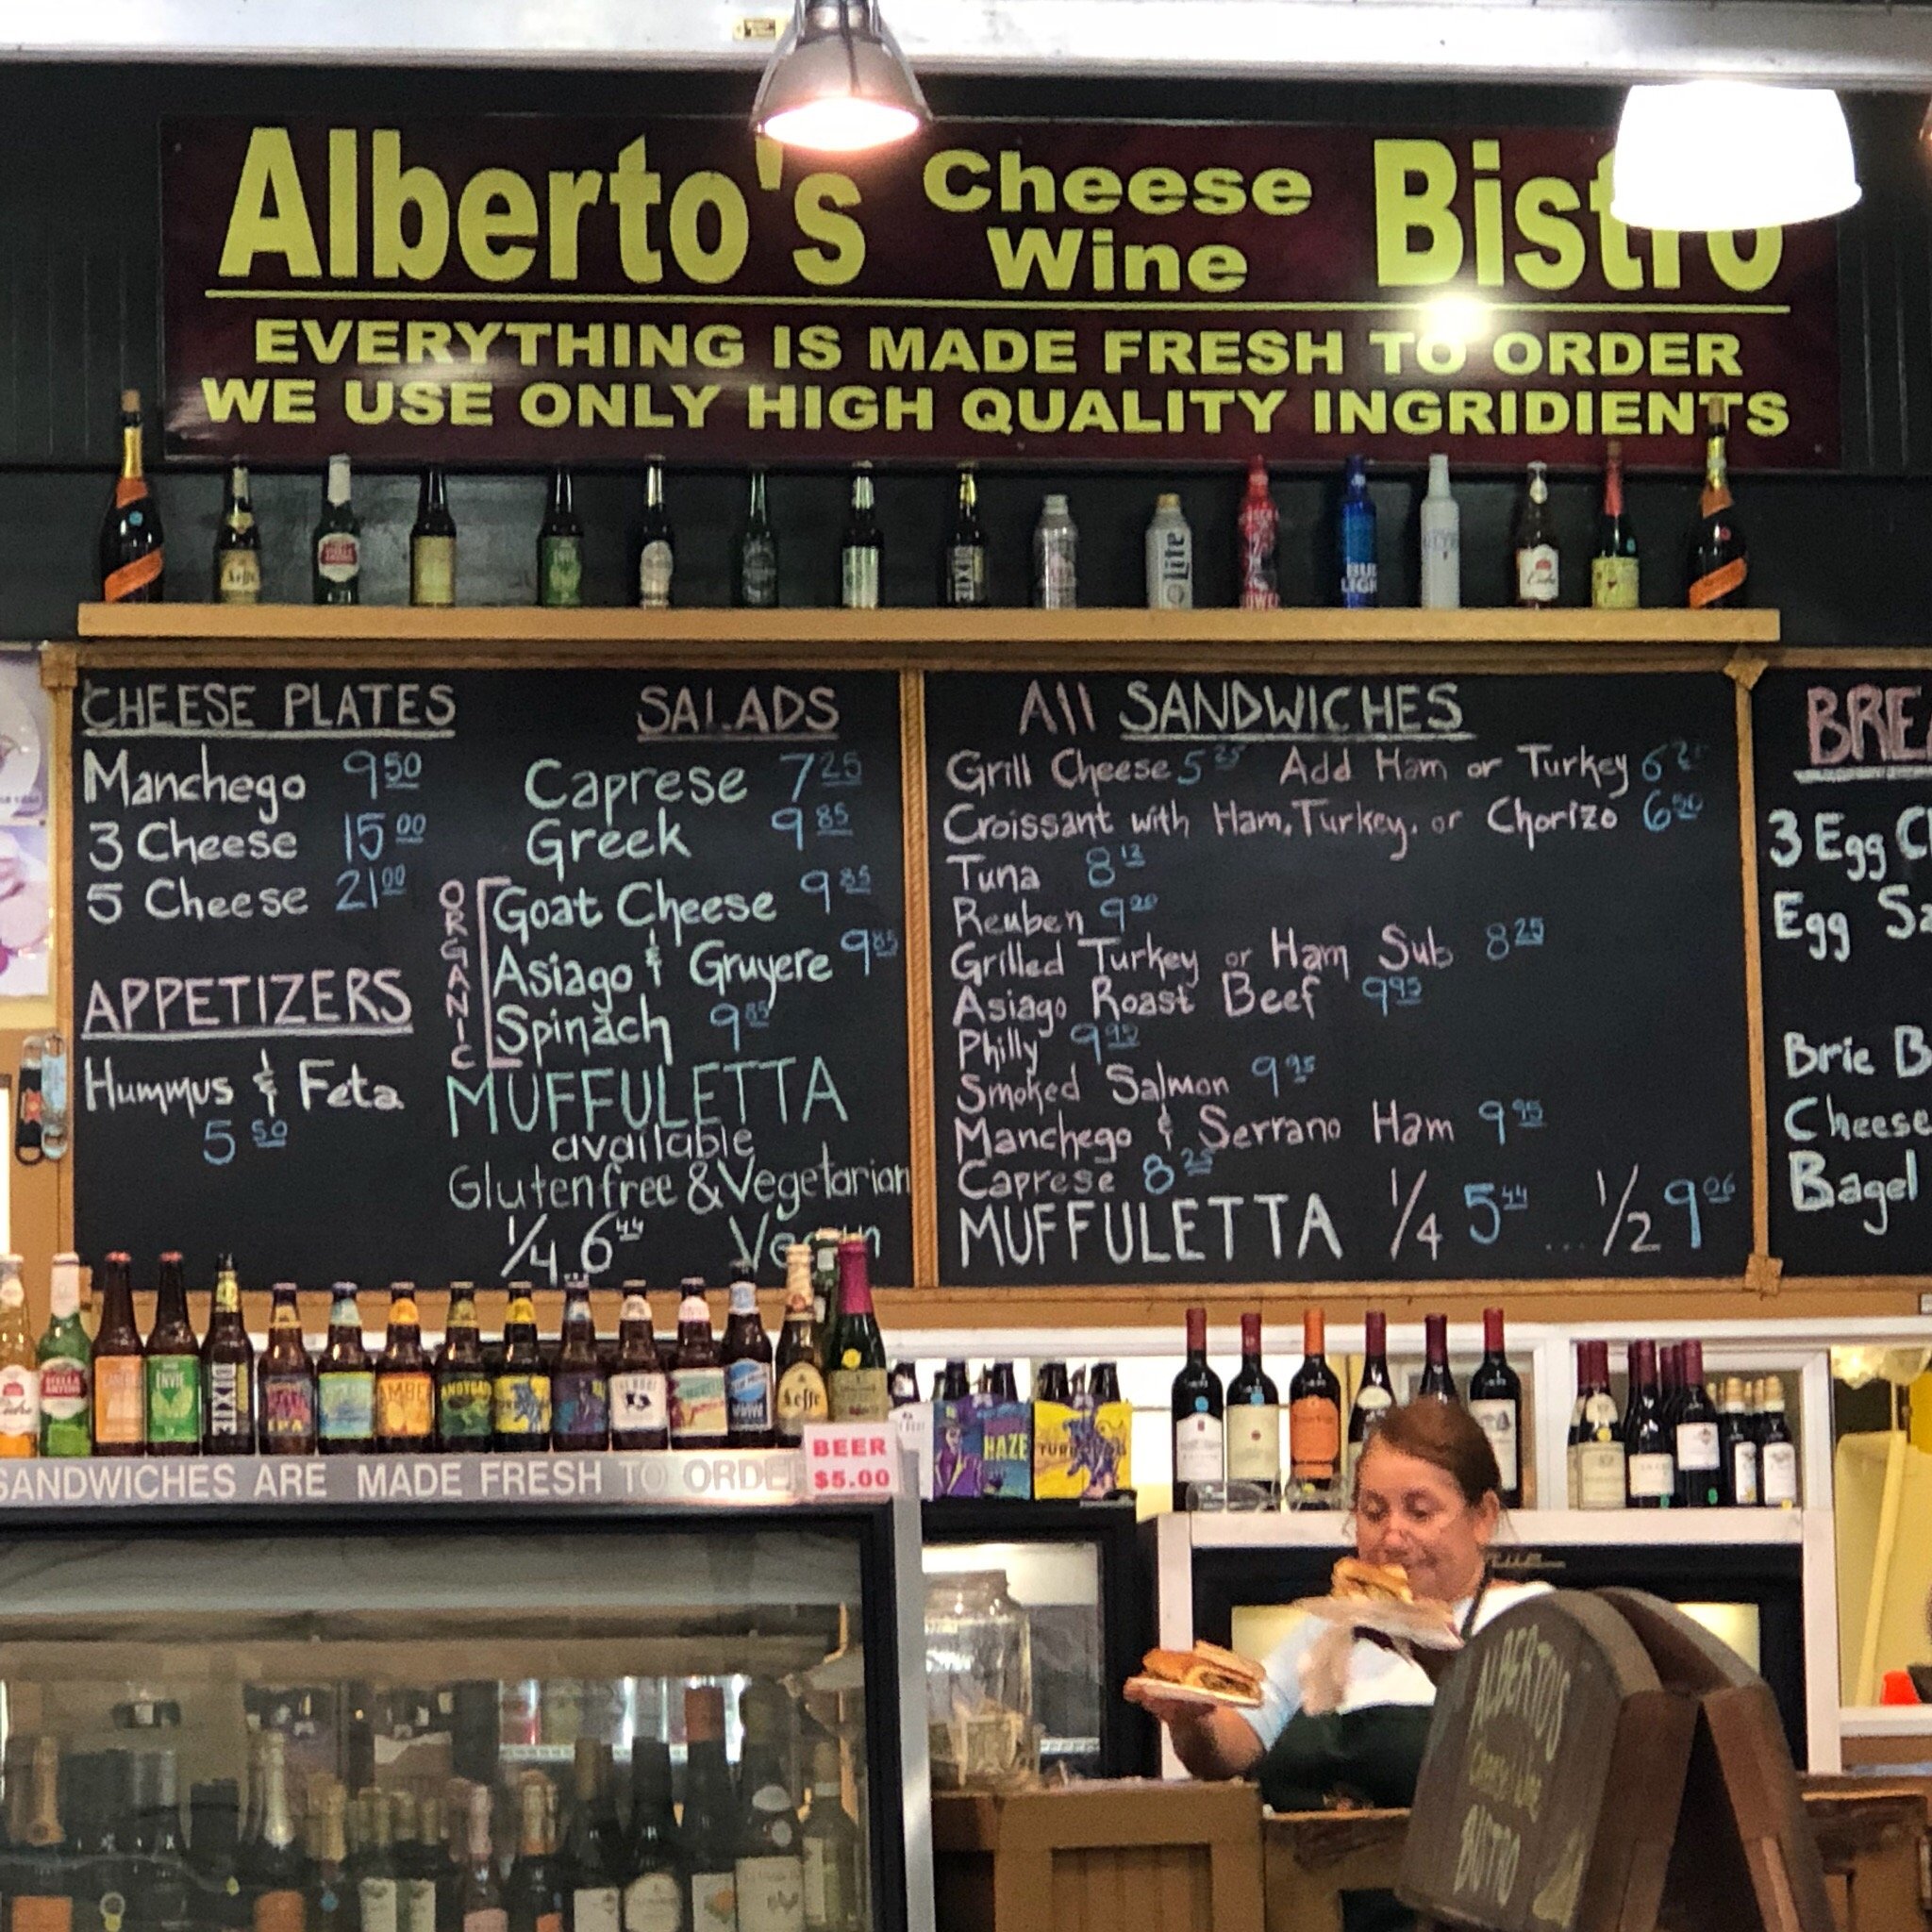 Alberto's Cheese Wine Bistro
EVERYTHING IS MADE FRESH TO ORDER
WE USE ONLY HIGH QUALITY INGRIDIENTS
Lite
BUD LIGHT
CHEESE PLATES
Manchego 9 50
3 Cheese 15 00
5 Cheese 21 00
APPETIZERS
Hummus & Feta
5 50
SALADS
Caprese 7 25
Greek 9 85
ORGANIC
Goat Cheese 9 85
Asiago & Gruyere 9 85
Spinach 9 85
MUFFULETTA
available
Glutenfree & Vegetarian
1/4 6 44 Vegan
All SANDWICHES
Grill Cheese 5 25 Add Ham or Turkey 6
Croissant with Ham, Turkey, or Chorizo 6 50
Tuna 8 12
Reuben 9 20
Grilled Turkey or Ham Sub 8 25
Asiago Roast Beef 9 95
Philly 9 95
Smoked Salmon 9 95
Manchego & Serrano Ham 9 95
Caprese 8 25
MUFFULETTA 1/4 5 44 ... 1/2 9 06
BREA
3 Egg C
Egg Sa
Brie B
Cheese
Bagel
STELLA ARTOIS
ENVIE
DIXIE
IPA
Leffe
HAZE
SANDWICHES ARE MADE FRESH TO ORDE
BEER
$5.00
ALBERTO'S
CHEESE WINE
BISTRO